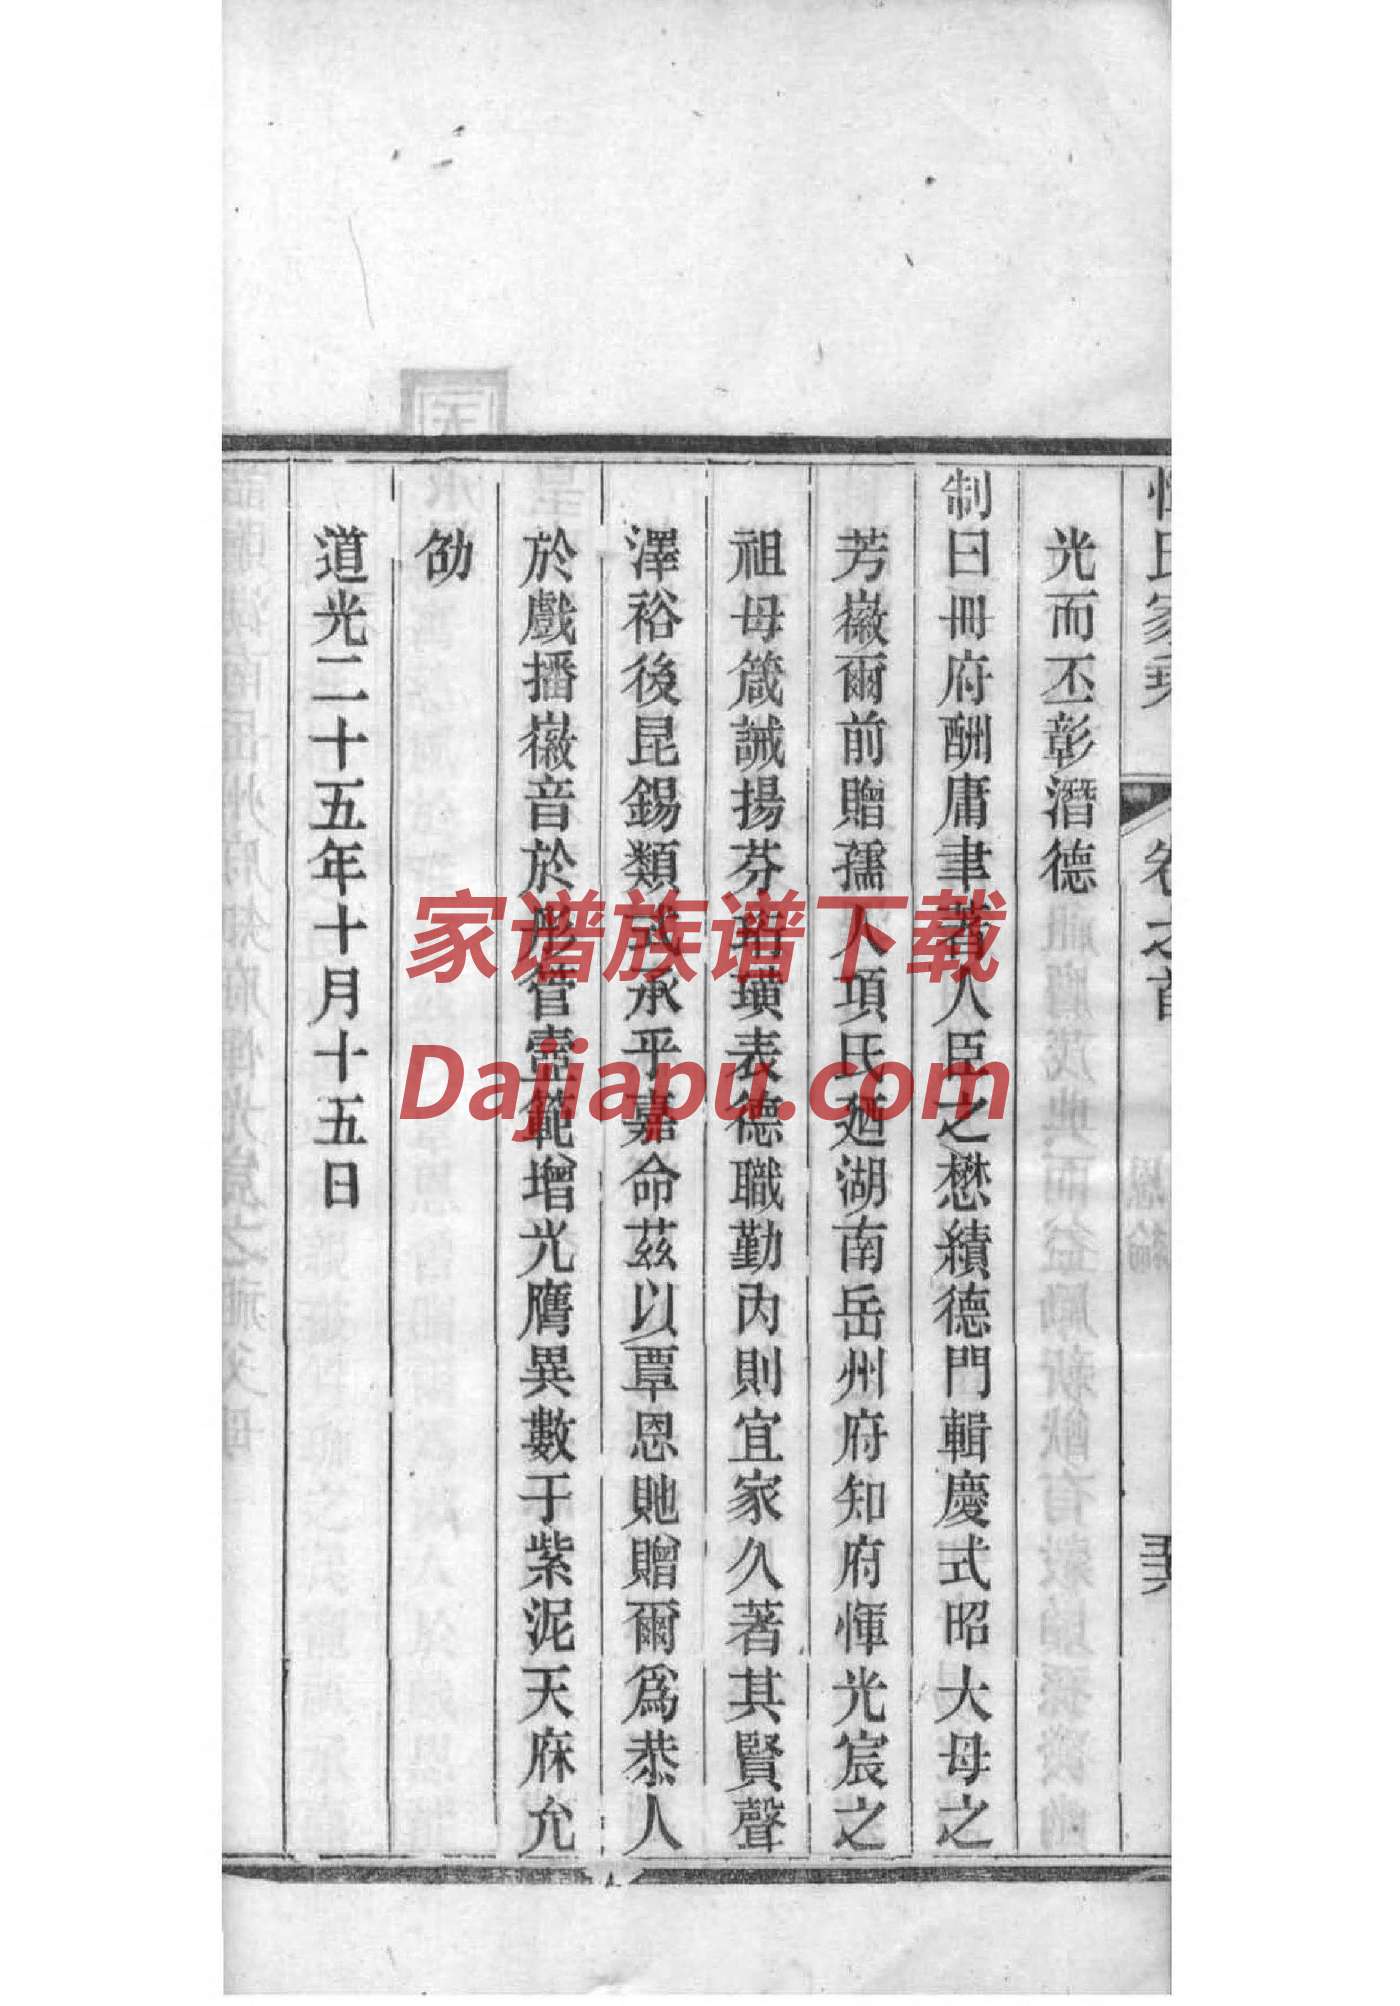 光而丕彰潛德
制曰冊府酬庸聿著人臣之懋績德門輯慶式昭大母之
芳徽爾前贈孺人項氏廼湖南岳州府知府惲光宸之
祖母箴誡揚芬珩璜表德職勤內則宜家久著其賢聲
澤裕後昆錫類式承乎嘉命茲以覃恩貤贈爾爲恭人
於戲播徽音於彤管壼範增光膺異數于紫泥天庥允
劭
道光二十五年十月十五日
家谱族谱下载
Dajiapu.com